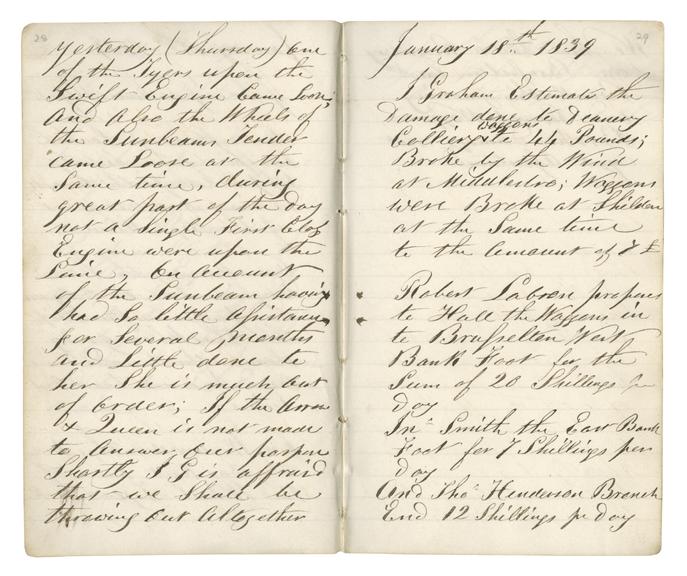 28
yesterday (Thursday) One
of the Tyers upon the
Swift Engine Came Loose,
And Also the Wheels of
the Sunbeams Tender
came Loose at the
Same time, during
great part of the day
not a Single First Class
Engine were upon the
Line, On Account
of the Sunbeam having
had So little Assistance
for Several months
and Little done to
her She is much out
of Order; If the Arrow
& Queen is not made
to Answer Our purpose
Shortly J G is affraid
that we Shall be
throwing Out Altogether
29
January 18th 1839
J Graham Estimates the
Damage done to Deanery
Colliery waggons to 44 Pounds;
Broke by the Wind
at Middlesbro; Waggons
were Broke at Shildon
at the Same time
to the Amount of 7 £
Robert Labron proposes
to Hall the Waggons in
to Brusselton West
Bank Foot for the
Sum of 20 Shillings per
Day
Jno Smith the East Bank
Foot for 7 Shillings per
day
And Thos Henderson Branch
End 12 Shillings pr day